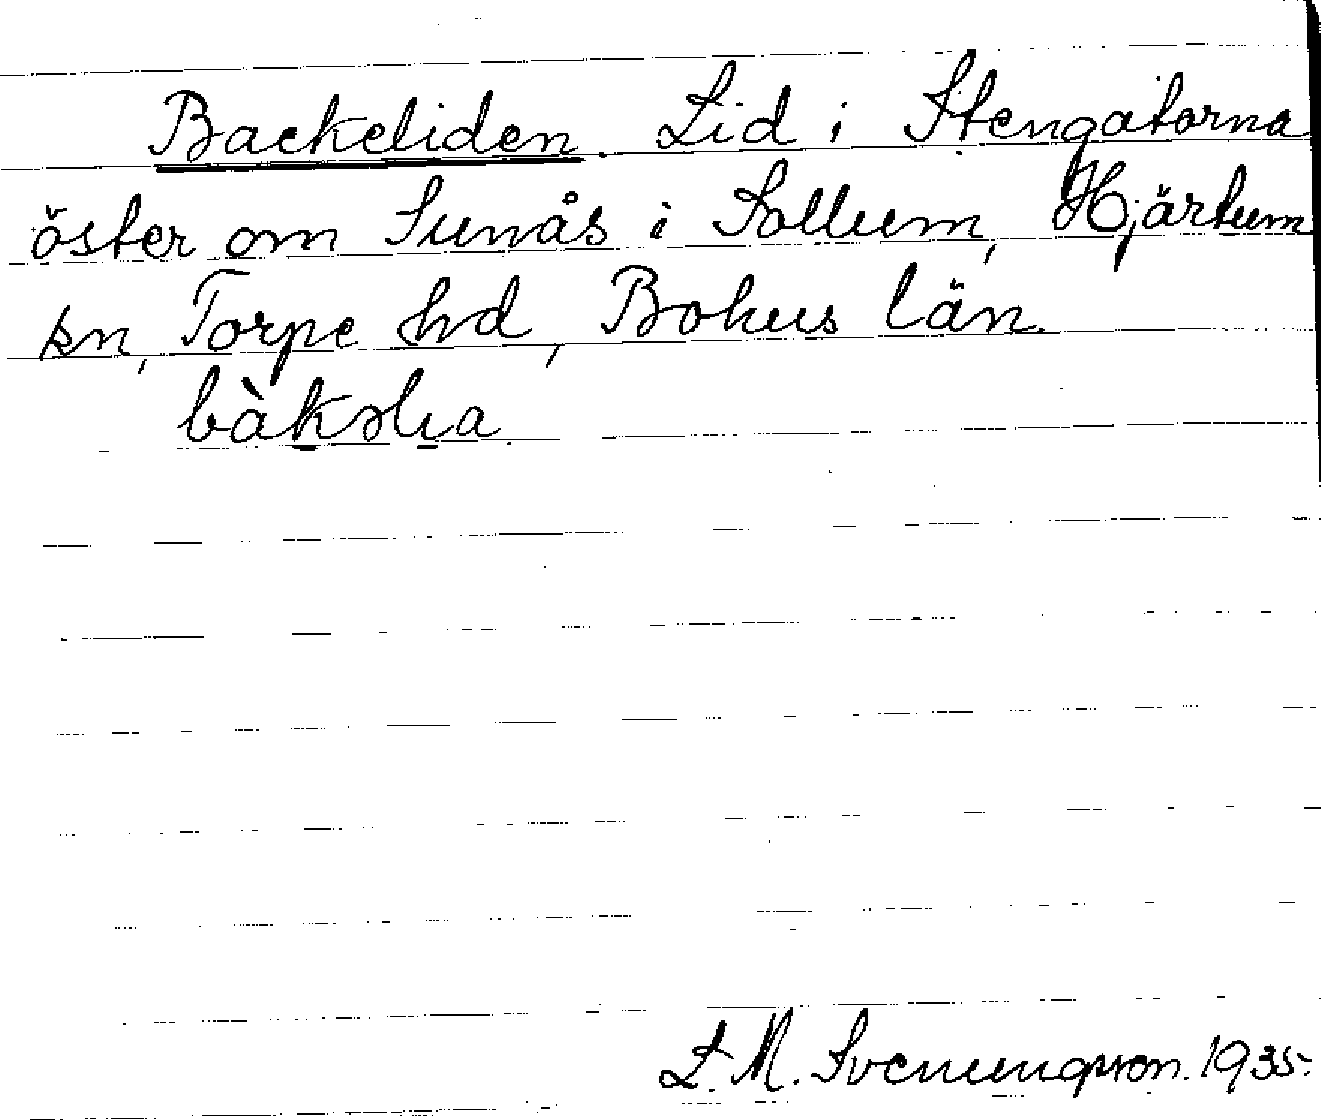 Backeliden. Lid i Stengatorna
öster om Sunås i Sollum, Hjärtum
sn, Torpe hd, Bohus län.
bàkəlia
L. M. Svenungsson. 1935.